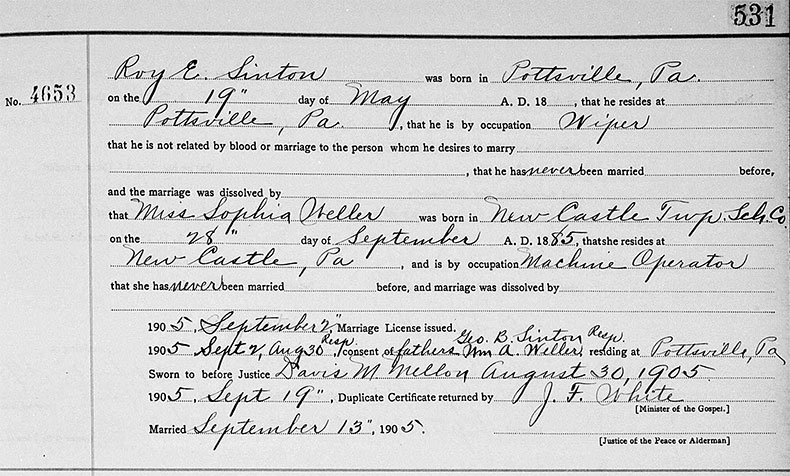 531
Roy E. Sinton was born in Pottsville, Pa.
No. 4653 on the 19" day of May A. D. 18 , that he resides at
Pottsville, Pa. , that he is by occupation Wiper
that he is not related by blood or marriage to the person whom he desires to marry
, that he has never been married before,
and the marriage was dissolved by
that Miss Sophia Weller was born in New Castle Twp. Sch. Co.
on the 28" day of September A. D. 1885, that she resides at
New Castle, Pa , and is by occupation Machine Operator
that she has never been married before, and marriage was dissolved by
1905, September 2", Marriage License issued.
Resp. Geo. B. Sinton Resp.
1905 Sept 2, Aug 30, consent of fathers Wm A. Weller, residing at Pottsville, Pa
Sworn to before Justice Davis M Mellon August 30, 1905.
1905, Sept 19", Duplicate Certificate returned by J. F. White
[Minister of the Gospel.]
Married September 13", 1905.
[Justice of the Peace or Alderman]